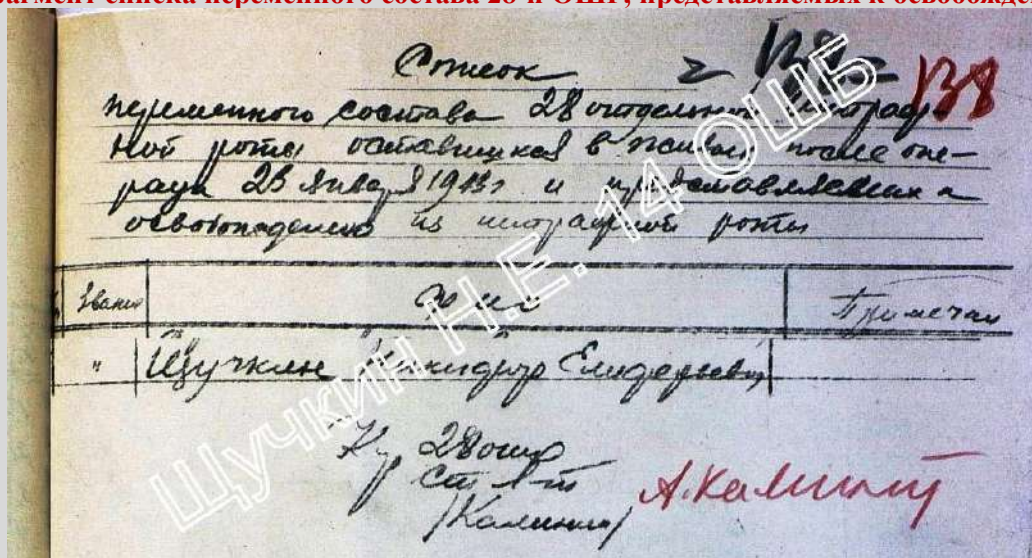 фрагмент списка переменного состава 28-й ОШР, представляемых к освобожден
Список
138
138
переменного состава 28 отдельной штраф
ной роты оставшихся в живых после опе-
рации 23 января 1943г и представляемых к
освобождению из штрафной роты
Звание
Ф И О
Примечан
"
Щучкин Никандр
Щучкин Н.Е. 14 ОШБ
28 ошр
ст л-т
/Калинин/
А.Калинин